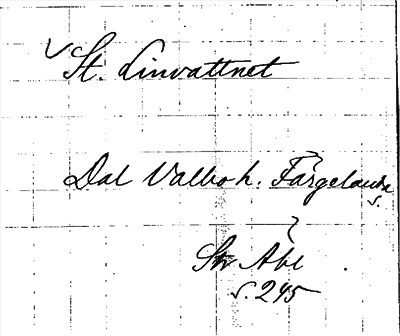 ✓ St. Linvattnet
Dal Valbo h. Färgelanda s.
Str Abl
s. 245